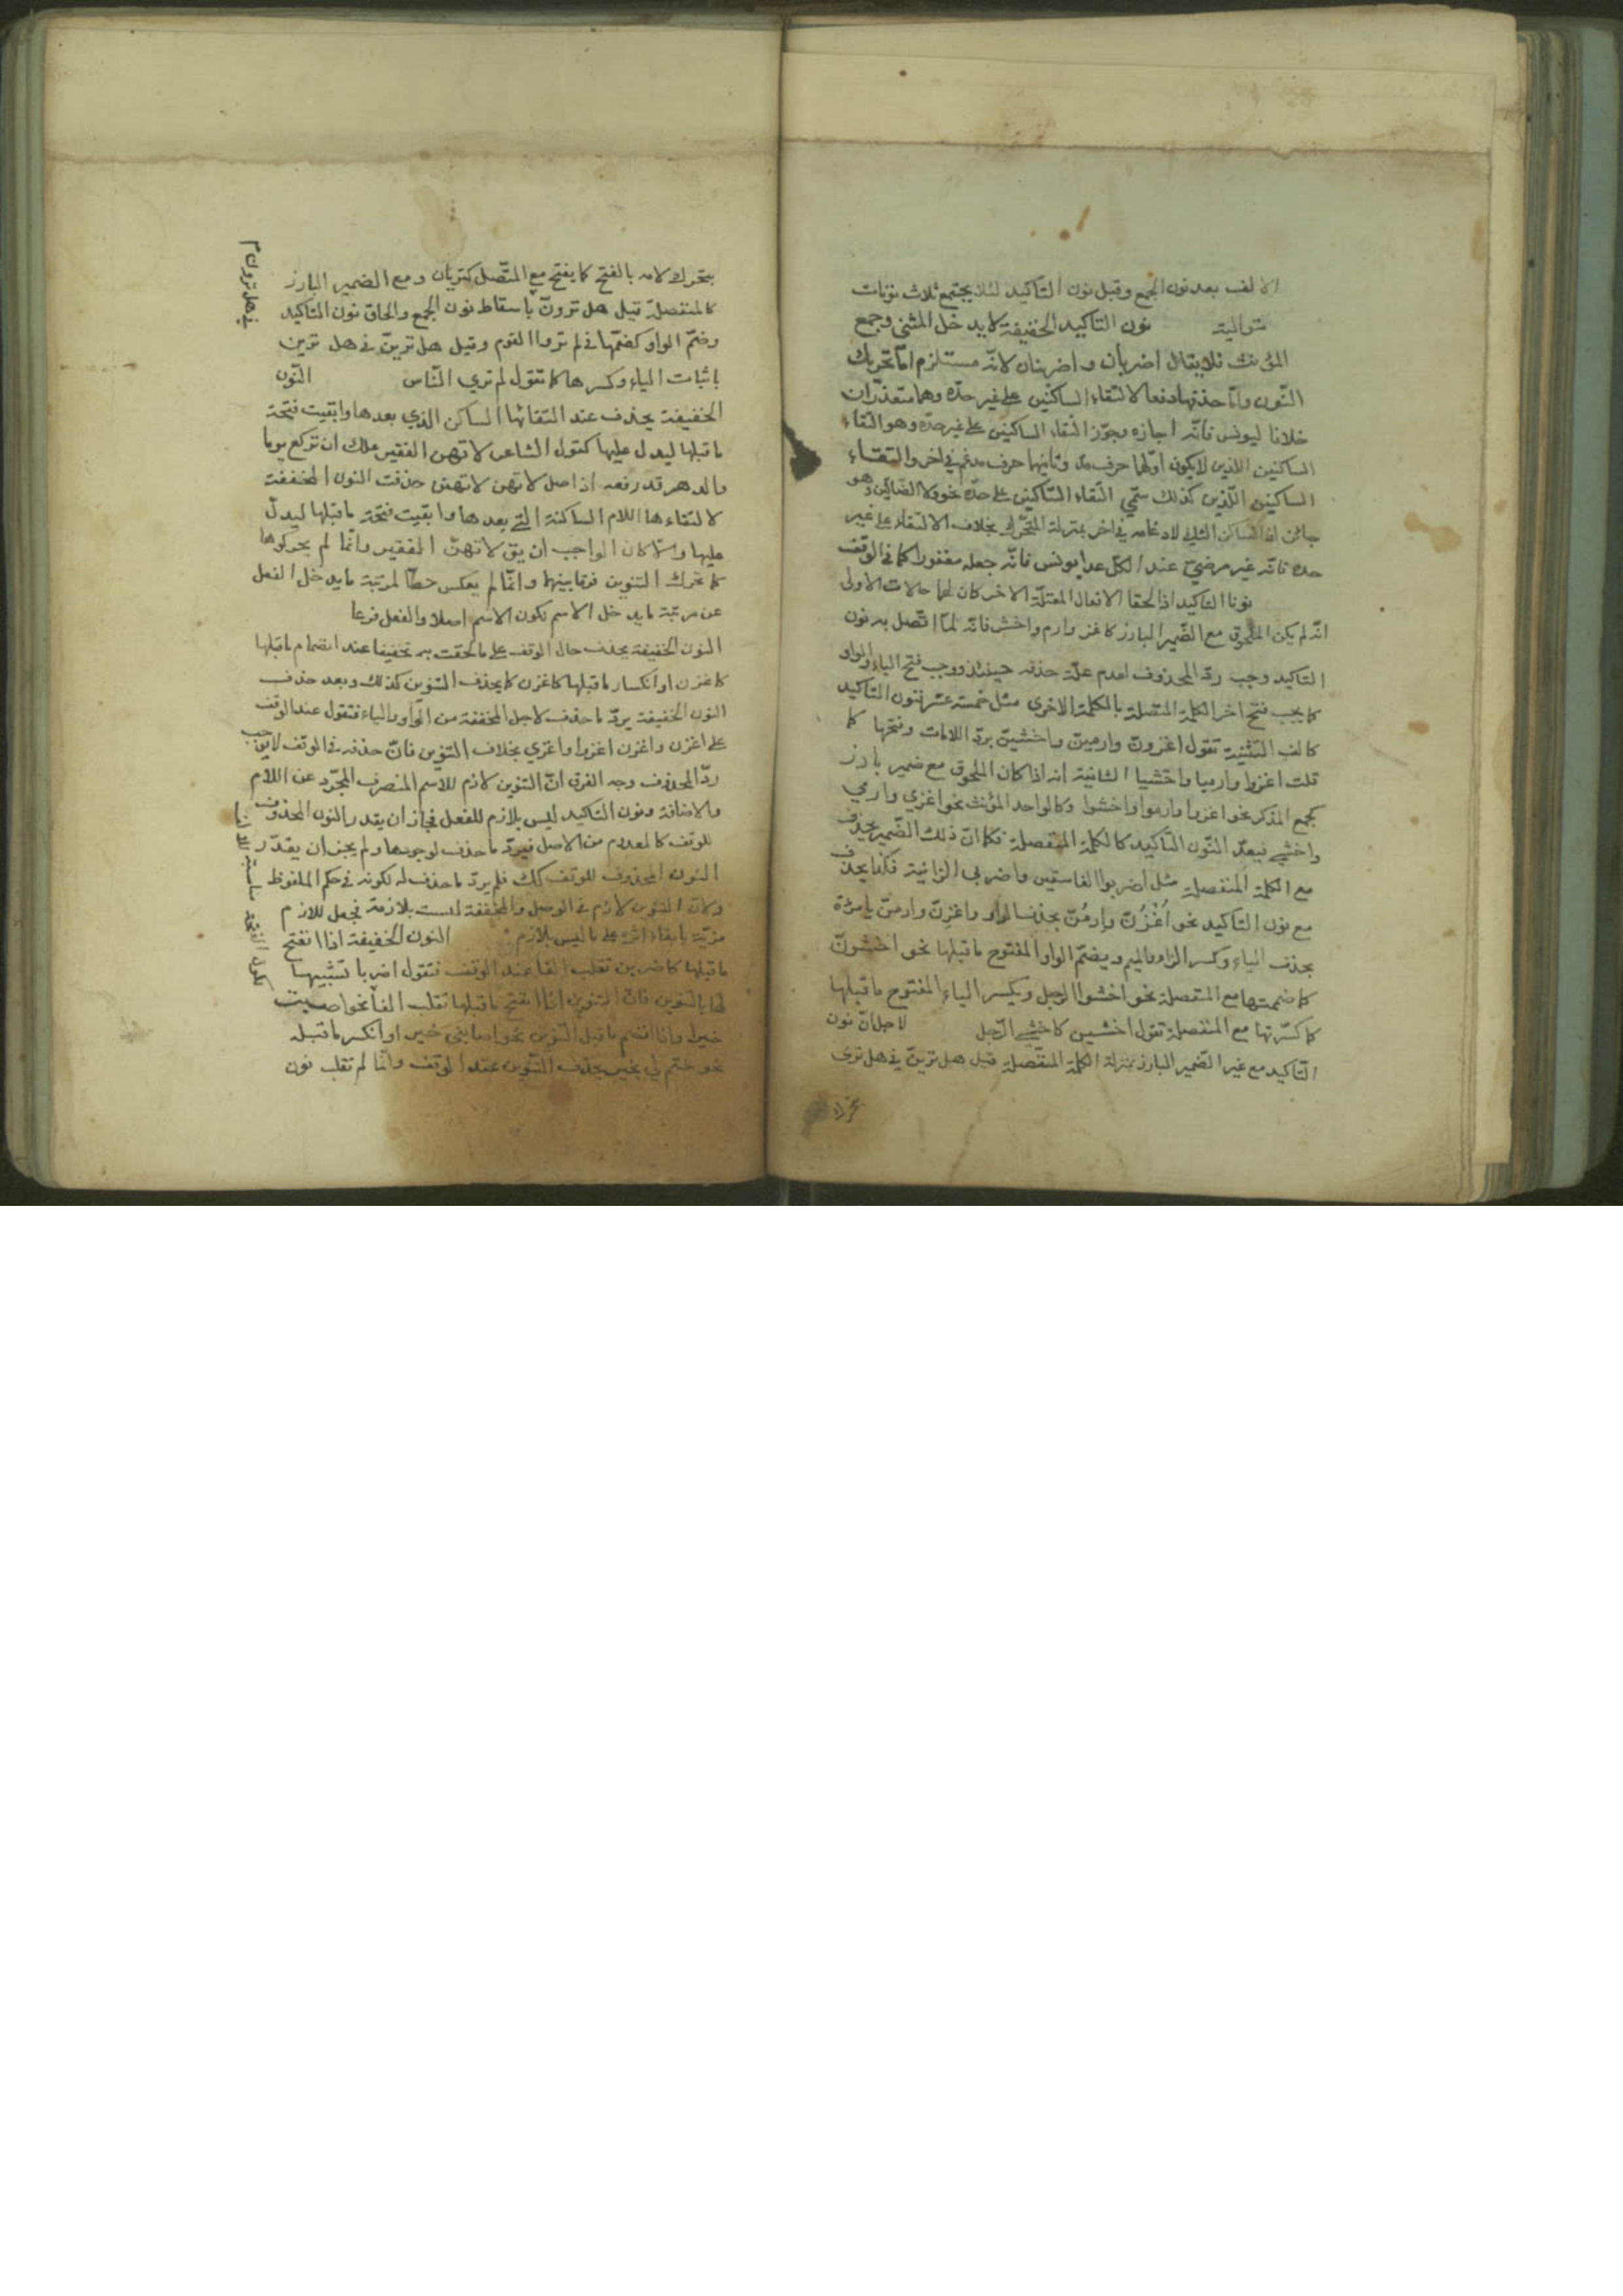 الالف بعد نون الجمع وقبل نون التاكيد لئلا يجتمع ثلاث نونات
متوالية نون التاكيد الخفيفة لا يدخل المثنى وجمع
المؤنث فلا يقال اضربان واضربنان لانه مستلزم اما تحريك
النون واما حذفها دفعا لالتقاء الساكنين على غير حدّه وهما متعذران
خلافا ليونس فانّه اجازه وجوّز التقاء الساكنين على غير حدّه وهو التقاء
الساكنين اللذين لا يكون اولهما حرف مد وثانيهما حرف مدغم في اخر والتقاء
الساكنين اللذين كذلك سمّي التقاء الساكنين على حدّه نحو ولا الضالين وهو
جائز لان الساكن الثاني لادغامه في اخر بمنزلة المتحرك بخلاف الالتقاء على غير
حده فانّه غير مرضيّ عند الكل عدا يونس فانّه جعله مغفورا كما في الوقف
نونا التاكيد اذا لحقا الافعال المعتلّة الاخر كان لهما حالات الاولى
انّه لم يكن الملحوق مع الضمير البارز كاغز وارم واخش فانّه لمّا اتّصل به نون
التاكيد وجب ردّ المحذوف لعدم علّة حذفه حينئذ ووجب فتح الياء والواو
كما يجب فتح اخر الكلمة المتصلة بالكلمة الاخرى مثل خمسة عشر فنون التاكيد
كالف التثنية تقول اغزونّ وارمينّ واخشينّ بردّ اللامات وفتحها كما
قلت اغزوا وارميا واخشيا الثانية انه اذا كان الملحوق مع ضمير بارز
كجمع المذكر نحو اغزوا وارموا واخشوا وكالواحد المؤنث نحو اغزي وارمي
واخشي فبعدّ النّون التّاكيد كالكلمة المنفصلة فكما انّ ذلك الضّمير يحذف
مع الكلمة المنفصلة مثل اضربوا الفاسقين واضربي الزانية فكذا يحذف
مع نون التاكيد نحو اُغْزُنّ وارمُنّ بحذف الواو واغزِنّ وارمنّ يا مرٔة
بحذف الياء وكسر الزاء والميم ويضمّ الواو المفتوح ما قبلها نحو اخشونّ
كما ضممتها مع المنفصلة نحو اخشوا الرجل ويكسر الياء المفتوح ما قبلها
كما كسّرتها مع المنفصلة تقول اخشين كاخشي الرّجل لاجل انّ نون
التّاكيد مع غير الضّمير البارز بمنزلة الكلمة المتّصلة قيل هل ترينّ في هل ترى
بتحريك لامه بالفتح كما يفتح مع المتّصل كتريان ومع الضمير البارز
كالمنفصلة قيل هل ترونّ باسقاط نون الجمع والحاق نون التاكيد
في هل ترون
وضمّ الواو كضمّها في لم تروا القوم وقيل هل ترينّ في هل ترين
باثبات الياء وكسرها كما تقول لم تري النّاس النّون
الخفيفة يحذف عند التقائها الساكن الذي بعدها وابقيت فتحة
ما قبلها ليدل عليها كقول الشاعر لا تهين الفقير علك ان تركع يوما
والدهر قد رفعه اذ اصل لا تهين لا تهينن حذفت النون المخففة
لالتقاءها اللام الساكنة التي بعدها وابقيت فتحة ما قبلها ليدلّ
عليها والّا كان الواجب ان يق لا تهن الفقير وانّما لم يحركوها
كما تحرك التنوين فرقا بينهما وانّما لم يعكس حطّا لمرتبة ما يدخل الفعل
عن مرتبة ما يدخل الاسم لكون الاسم اصلا والفعل فرعا
النون الخفيفة يحذف حال الوقف على ما لحقت به تخفيفا عند انضمام ما قبلها
كاغزن او انكسار ما قبلها كاغزن كما يحذف التنوين كذلك وبعد حذف
النون الخفيفة يردّ ما حذف لاجل المخففة من الواو والياء فتقول عند الوقف
على اغزن واغزن اغزوا واغزي بخلاف التنوين فانّ حذفه في الوقف لا يوجب
ردّ المحذوف وجه الفرق انّ التنوين لازم للاسم المنصرف المجرّد عن اللام
والاضافة ونون التاكيد ليس بلازم للفعل فجاز ان يقدر النون المحذوف
للوقف كالمعدوم من الاصل فيردّ ما حذف لوجودها ولم يجز ان يقدّر
النون المحذوف للوقف كك فلم يردّ ما حذف له لكونه في حكم الملفوظ
ولان التنوين لازم في الوصل والمخففة ليست بلازمة فجعل للازم
مزيّة بابقاء اثره على ما ليس بلازم النون الخفيفة اذا انفتح
ما قبلها كاضربن تقلب الفا عند الوقف فتقول اضربا تشبيها
لها بالتنوين فانّ التنوين اذا انفتح ما قبلها تقلب الفا نحو اصبت
خيرا واذا انضم ما قبل التنوين نحو اصابني خير او انكسر ما قبله
نحو ختم لي بخير يحذف التّنوين عند الوقف وانّما لم تقلب نون